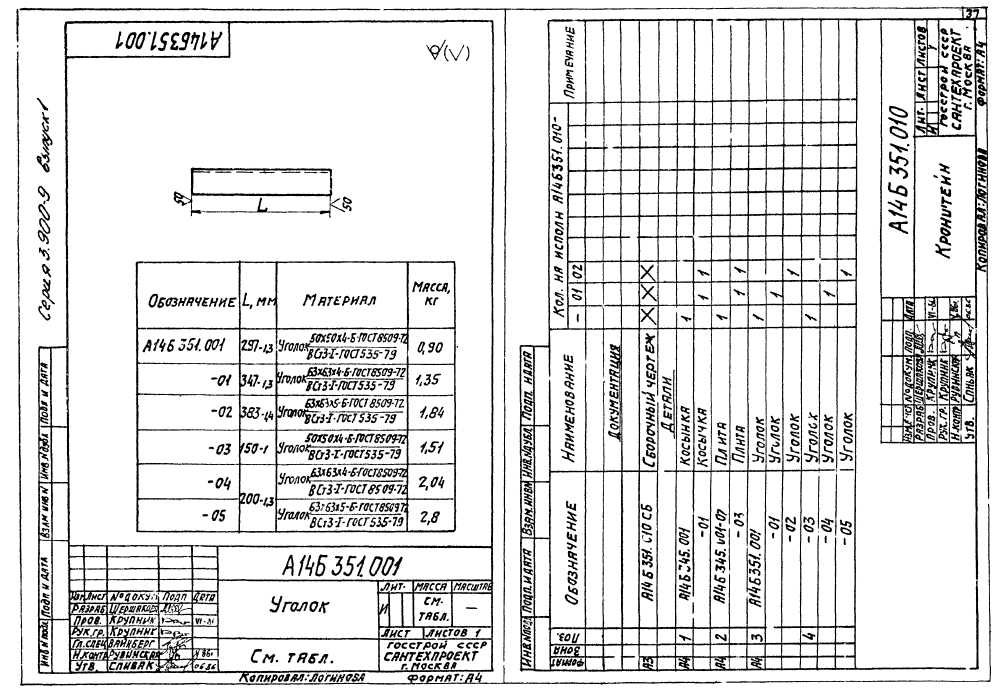 А14Б351.001
Серия 3.900-9 Выпуск 1
50
L
50
Обозначение L, мм Материал Масса, кг
А14Б 351.001 297-1,3 Уголок 50х50х4-Б-ГОСТ8509-72 ВСт3-I-ГОСТ535-79 0,90
-01 347-1,3 Уголок 63х63х4-Б-ГОСТ8509-72 ВСт3-I-ГОСТ535-79 1,35
-02 383-1,4 Уголок 63х63х5-Б-ГОСТ8509-72 ВСт3-I-ГОСТ535-79 1,84
-03 150-1 Уголок 50х50х4-Б-ГОСТ8509-72 ВСт3-I-ГОСТ535-79 1,51
-04 200-1,3 Уголок 63х63х4-Б-ГОСТ8509-72 ВСт3-I-ГОСТ8509-72 2,04
-05 Уголок 63х63х5-Б-ГОСТ8509-72 ВСт3-I-ГОСТ535-79 2,8
Инв № подл Подп и дата Взам инв № Инв № дубл Подп и дата
А14Б 351.001
Изм Лист № докум Подп Дата
Разраб Шершакова
Пров. Крупник VI-86
Рук.гр. Крупник
Гл.спец Вайнберг
Н.контр Рувинская
Утв. Спивак 06.86
Уголок
См. табл.
Лит. Масса Масштаб
И См. табл. —
Лист Листов 1
Госстрой СССР
Сантехпроект
г. Москва
Копировал: Логинова Формат: А4
37
Формат Зона Поз. Обозначение Наименование Кол. на исполн А14Б351.010- Примечание
- 01 02
Документация
А3 А14Б 351.010 СБ Сборочный чертеж Х Х Х
Детали
А4 1 А14Б 345.001 Косынка 1
-01 Косычка 1 1
А4 2 А14Б 345.001-02 Плита 1
-03 Плита 1 1
А4 3 А14Б 351.001 Уголок 1
-01 Уголок 1
-02 Уголок 1
4 -03 Уголок 1
-04 Уголок 1
-05 Уголок 1
Инв № подл Подп. и дата Взам. инв № Инв. № дубл Подп. и дата
А14Б 351.010
Изм Лист № докум. Подп. Дата
Разраб Шершакова
Пров. Крупник VI-86
Рук. гр. Крупник
Н.контр Рувинская
Утв. Спивак
Кронштейн
Лит. Лист Листов
И
Госстрой СССР
Сантехпроект
г. Москва
Копировал: Логинова Формат: А4